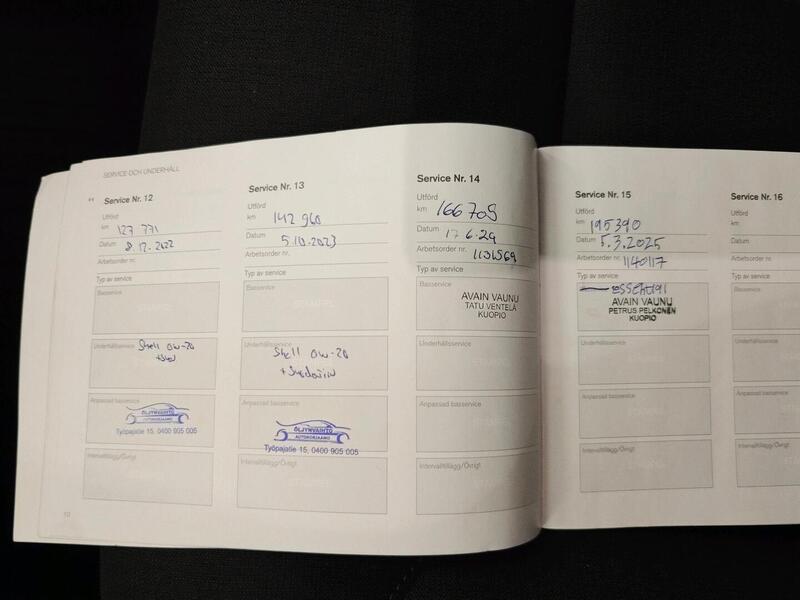 SERVICE OCH UNDERHÅLL
Service Nr. 12
Utförd
km 127 771
Datum 8.12.2022
Arbetsorder nr.
Typ av service
Basservice
Underhållsservice Shell 0W-20
Anpassad basservice
ÖLJYNVAIHTO
AUTOKORJAAMO
Työpajatie 15, 0400 905 005
Intervalltillägg/Övrigt
10
Service Nr. 13
Utförd
km 142 960
Datum 5.10.2023
Arbetsorder nr.
Typ av service
Basservice
Underhållsservice
Shell 0W-20
Anpassad basservice
ÖLJYNVAIHTO
AUTOKORJAAMO
Työpajatie 15, 0400 905 005
Intervalltillägg/Övrigt
Service Nr. 14
Utförd
km 166 709
Datum 17.6.24
Arbetsorder nr. 1131569
Typ av service
Basservice
AVAIN VAUNU
TATU VENTELÄ
KUOPIO
Underhållsservice
Anpassad basservice
Intervalltillägg/Övrigt
Service Nr. 15
Utförd
km 195390
Datum 5.3.2025
Arbetsorder nr. 1140117
Typ av service
AVAIN VAUNU
PETRUS PELKONEN
KUOPIO
Underhållsservice
Anpassad basservice
Intervalltillägg/Övrigt
Service Nr. 16
Utförd
km
Datum
Arbetsorder nr.
Typ av service
Basservice
Underhållsservice
Anpassad basservice
Intervalltillägg/Övrigt